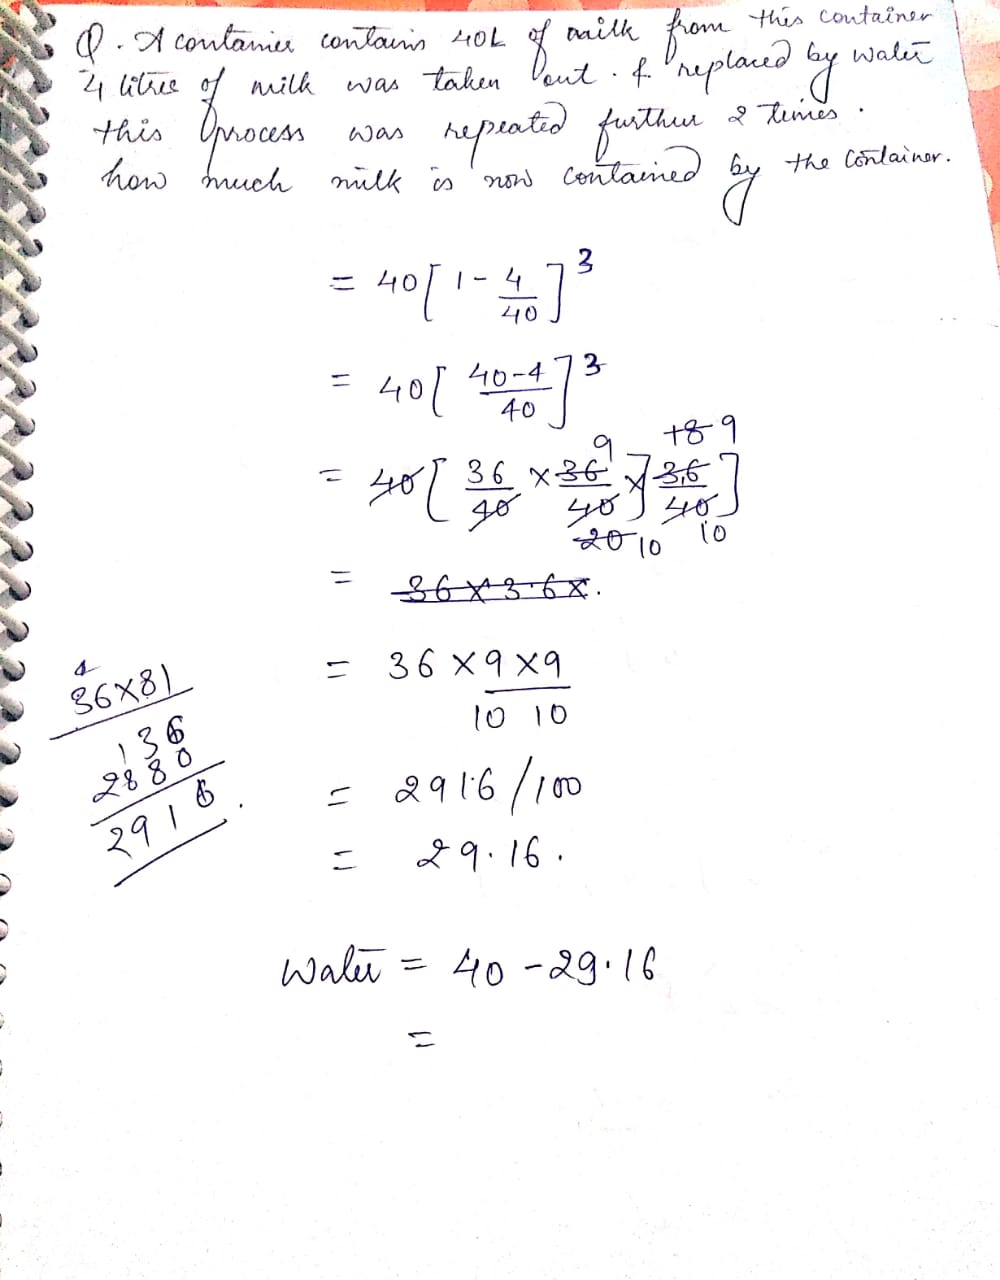 Q. A container contains 40L of milk from this container
4 litre of milk was taken out. & replaced by water
this process was repeated further 2 times.
how much milk is now contained by the container.
= 40[1 - 4/40]^3
= 40[40-4/40]^3
9 +8 9
= 40[36/40 × 36/40] × 36/40]
20 10 10
= 36×3.6×.
= 36 × 9 × 9
10 10
36×81
136
2880
2916.
= 2916/100
= 29.16.
Water = 40 - 29.16
=